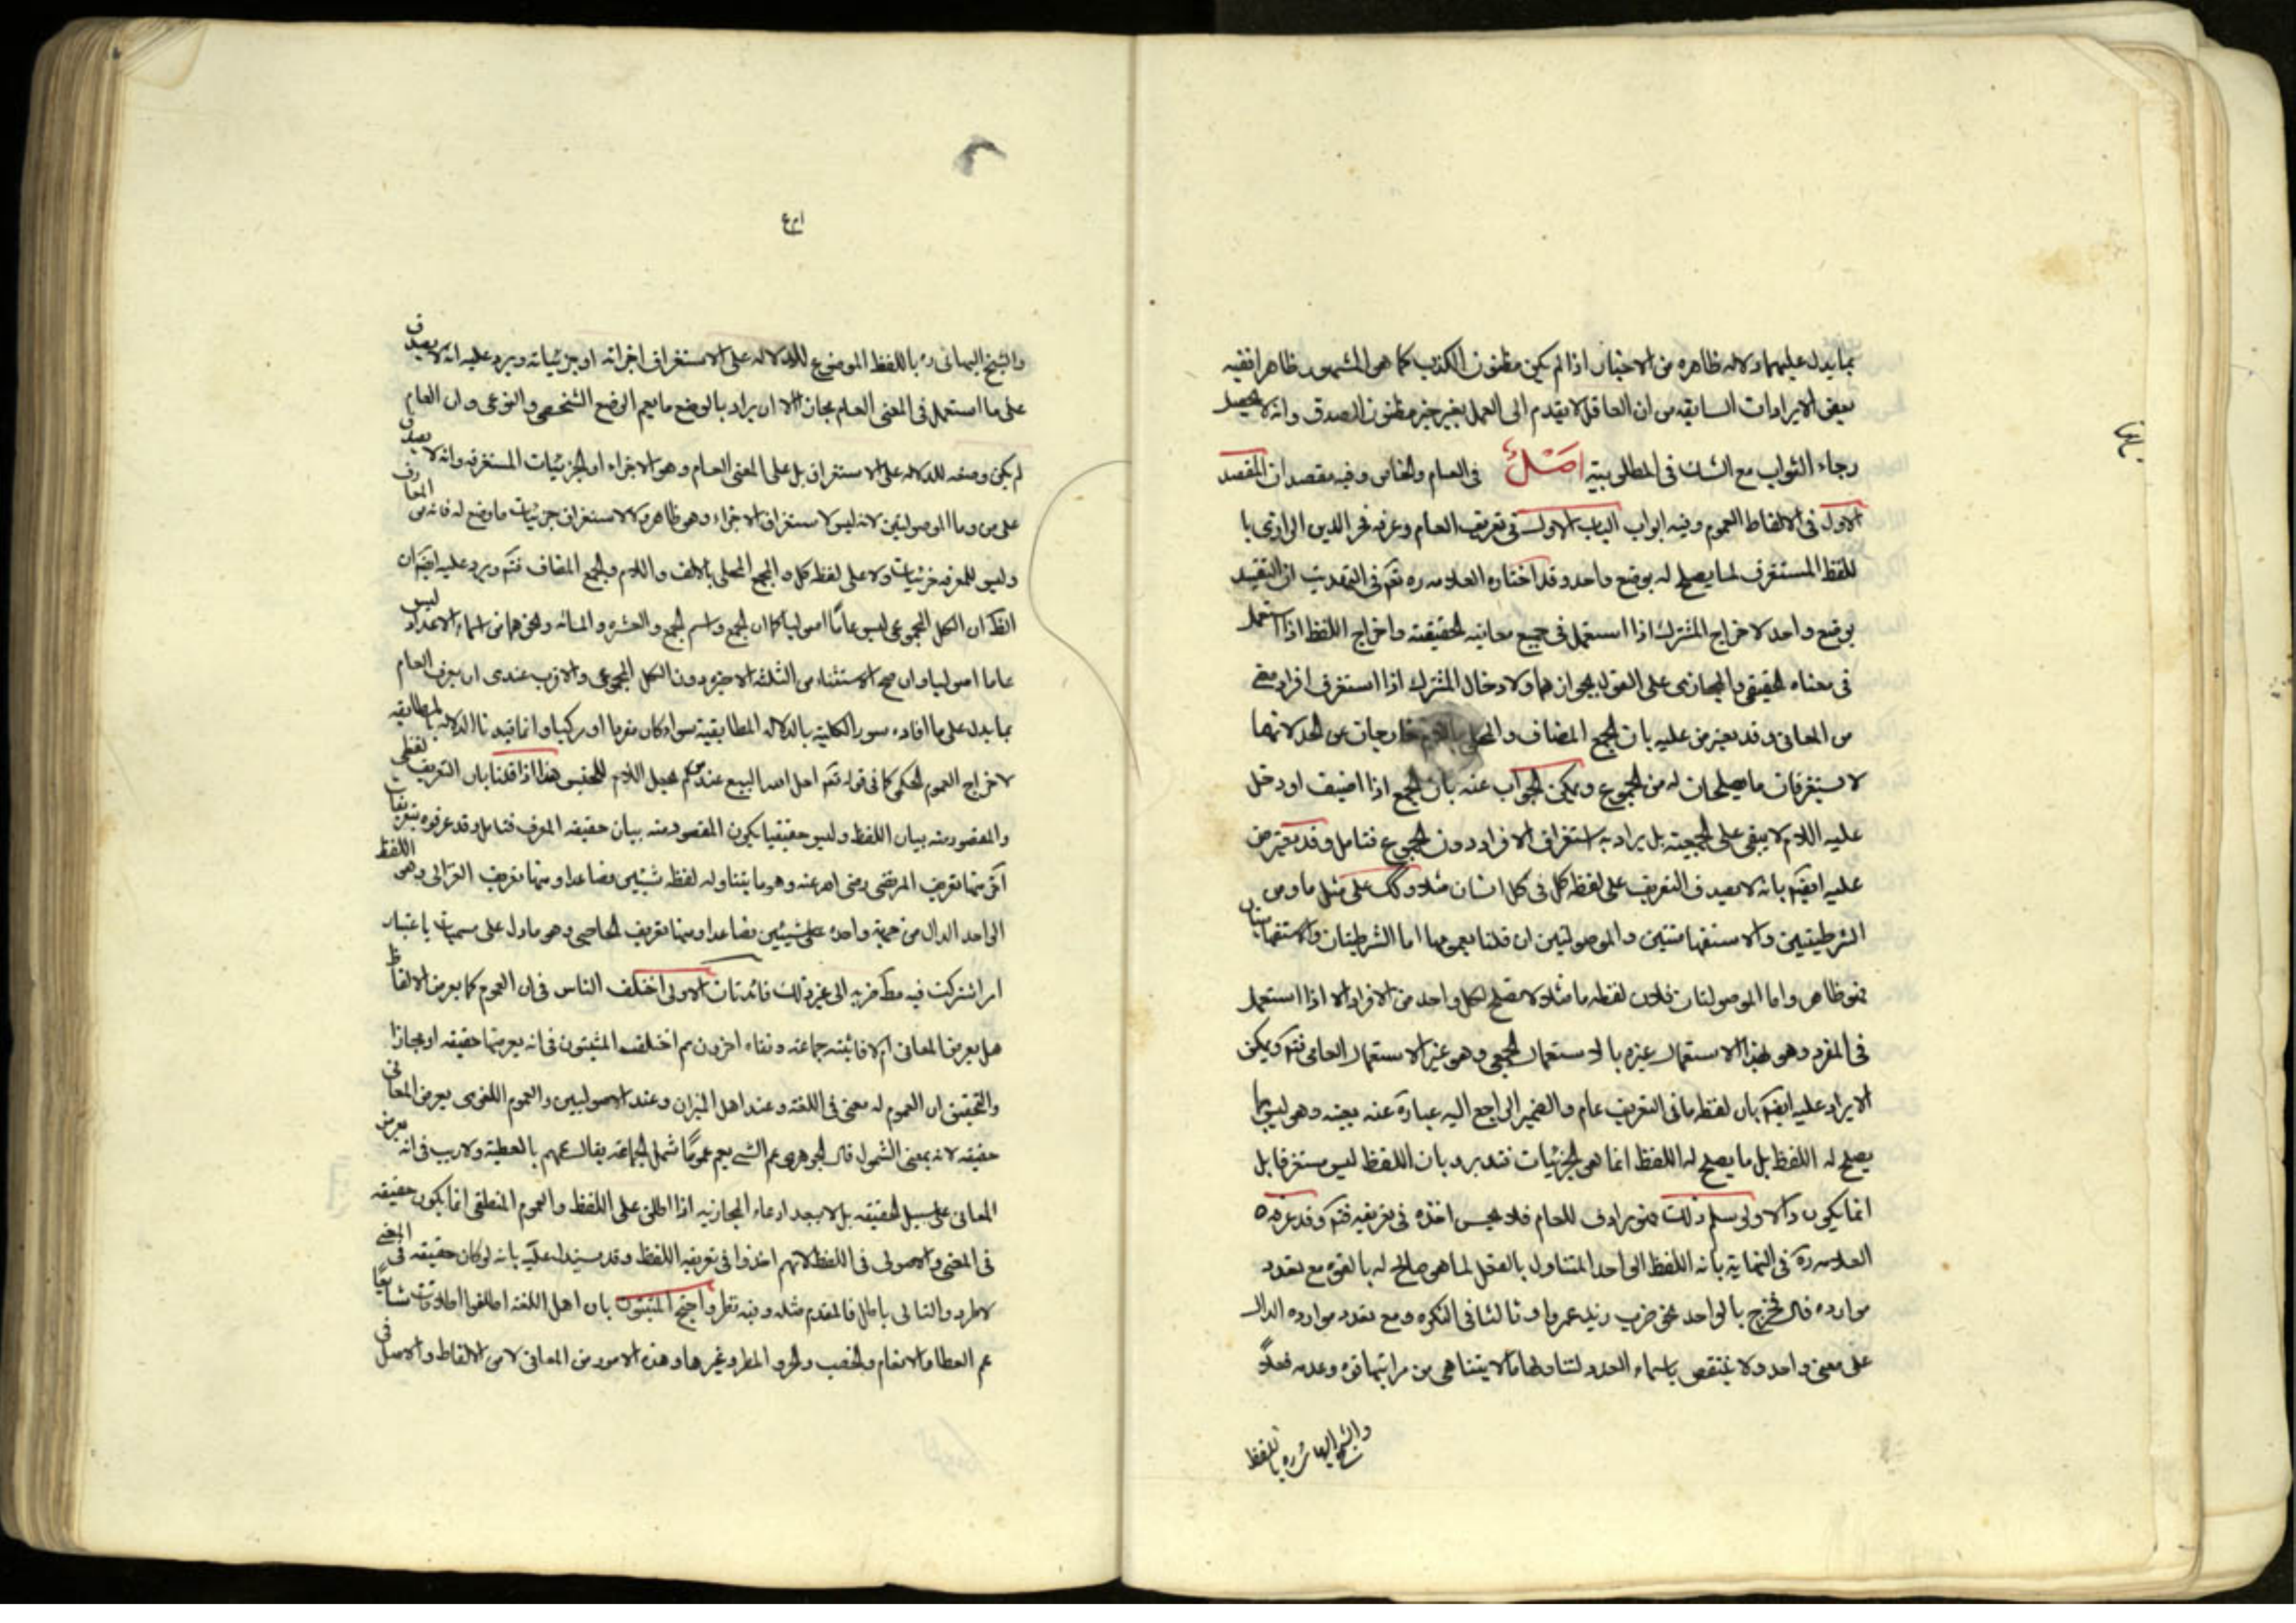 بما يدل عليهما دلاله ظاهره من الاخبار اذا لم يكن مظنون الكذب كما هو المشهور ظاهرا ففيه
بعض الايرادات السابقه من ان العاقل لا يقدم الى العمل بغير خبر مظنون الصدق وانه لا يحصل
رجاء الثواب مع الشك فى المطلوبية اصل فى العام والخاص وفيه مقصدان المقصد
الاول فى الالفاظ العموم وفيه ابواب الباب الاول فى تعريف العام وعرفه فخر الدين الرازى با
للفظ المستغرق لما يصلح له بوضع واحد وقد اختاره العلامه ره فى التهذيب ان التقييد
بوضع واحد لاخراج المشترك اذا استعمل فى جميع معانيه الحقيقته واخراج اللفظ اذا استعمل
فى معناه الحقيقى والمجازى على القول بجوازهما ولادخال المشترك اذا استغرق افراد معنى
من المعانى وقد يعترض عليه بان الجمع المضاف والمحلى باللام خارجان عن الحد لانهما
لا يستغرقان ما يصلحان له من الجموع ويمكن الجواب عنه بان الجمع اذا اضيف او دخل
عليه اللام لا يبقى على الجمعيته بل يراد به استغراق الافراد دون الجموع فتامل وقد يعترض
عليه ايضا بانه لا يصدق التعريف على لفظه كل فى كل انسان مثلا وكك على مثل ما ومن
الشرطيتين والاستفهاميتين والموصولتين ان قلنا بعمومها اما الشرطيتان والاستفهاميتان
فهو ظاهر واما الموصولتان فلان لفظه ما مثلا لا تصلح لكل واحد من الافراد الا اذا استعمل
فى المفرد وهو بهذا الاستعمال غيره بالاستعمال الجمعى وهو غير الاستعمال العامى فتم ويمكن
الايراد عليه ايضا بان لفظه ما فى التعريف عام والضمير الراجع اليه عبارة عنه بعينه وهو ليس بما
يصلح له اللفظ بل ما يصلح له اللفظ انما هى الجزئيات فتدبر وبان اللفظ ليس مستغرقا بل
انما يكون دالا ولو سلم ذلك فهو يرادف للعام فلا يحسن اخذه فى تعريفه فتم وقد عرفه
العلامه ره فى النهاية بانه اللفظ الواحد المتناول بالفعل لما هو صالح له بالقوه مع تعدد
موارده قال فخرج بالواحد نحو ضرب زيد عمروا وثالثا فى النكره ومع تعدد موارده الدال
على معنى واحد ولا ينتقص باسماء العدد لتناولها ما لا يتناهى من مراتبها قوه وعدمه فعلا
والشيخ البهائى ره باللفظ
والشيخ البهائى ره باللفظ الموضوع للدلاله على الاستغراق اجزائه او جزئياته ويرد عليه انه لا يصدق
على ما استعمل فى المعنى العام مجازا الا ان يراد بالوضع ما يعم الوضع الشخصى والنوعى وان العام
لم يكن وضعه للدلاله على الاستغراق بل على المعنى العام وهو الاجزاء او الجزئيات المستغرقه وانه لا يصدق
على من وما الموصولتين لانه ليس لاستغراق الاجزاء وهو ظاهر ولا لاستغراق جزئيات ما وضع له فانه من المعارف
وليس للمعرفه جزئيات ولا على لفظه كل والجمع المحلى بالالف واللام والجمع المضاف فتم ويرد عليه ايضا ان
الظ ان الكل المجموعى ليس عاما اصوليا كما ان الجمع واسم الجمع والعشره والمائه ونحوهما من اسماء الاعداد ليس
عاما اصوليا وان صح الاستثناء من الثلثه الاخيره دون الكل المجموعى والاقرب عندى ان يعرف العام
بما يدل على ما افاده سور الكلية بالدلاله المطابقية سواء كان مفردا او مركبا وانما قيدنا الدلاله بالمطابقيه
لاخراج العموم الحكمى كما فى قوله تعم احل الله البيع عند من لم يجعل اللام للجنس هذا اذا قلنا بان التعريف لفظى
والمقصود منه بيان اللفظ وليس حقيقيا يكون المقصود منه بيان حقيقه المعرف فتامل وقد عرفوه بتعريفات
اخر منها تعريف المرتضى رضى الله عنه وهو ما يتناول لفظه شيئين فصاعدا ومنها تعريف الغزالى وهو اللفظ
الواحد الدال من جهة واحده على شيئين فصاعدا ومنها تعريف الحاجبى وهو ما دل على مسميات باعتبار
امر اشتركت فيه مطلقا ضربه الى غير ذلك فائدتان الاولى اختلف الناس فى ان العموم كما يعرض الالفاظ
هل يعرض المعانى ام لا فاثبته جماعته ونفاه اخرون ثم اختلف المثبتون فى انه يعرضها حقيقه او مجازا
والتحقيق ان العموم له معنى فى اللغته وعند اهل الميزان وعند الاصوليين والعموم اللغوى يعرض المعانى
حقيقه لانه بمعنى الشمول قال الجوهرى عم الشئ يعم عموما شمل الجماعته يقال عمهم بالعطية ولا ريب فى انه يعرض
المعانى على سبيل الحقيقه بل لا يبعد ادعاء المجازيه اذا اطلق على اللفظ والعموم المنطقى انما يكون حقيقه
فى المعنى والاصولى فى اللفظ لانهم اخذوا فى تعريفه اللفظ وقد يستدل عليه بانه لو كان حقيقه فى المعنى
لاطرد والتالى باطل فالمقدم مثله وفيه نظر واحتج المثبتون بان اهل اللغته اطلقوا اطلاقات شايعا
عم العطا والانعام والخصب والحر والمطر وغيرها وهذه الامور من المعانى لا من الالفاظ والاصل فى